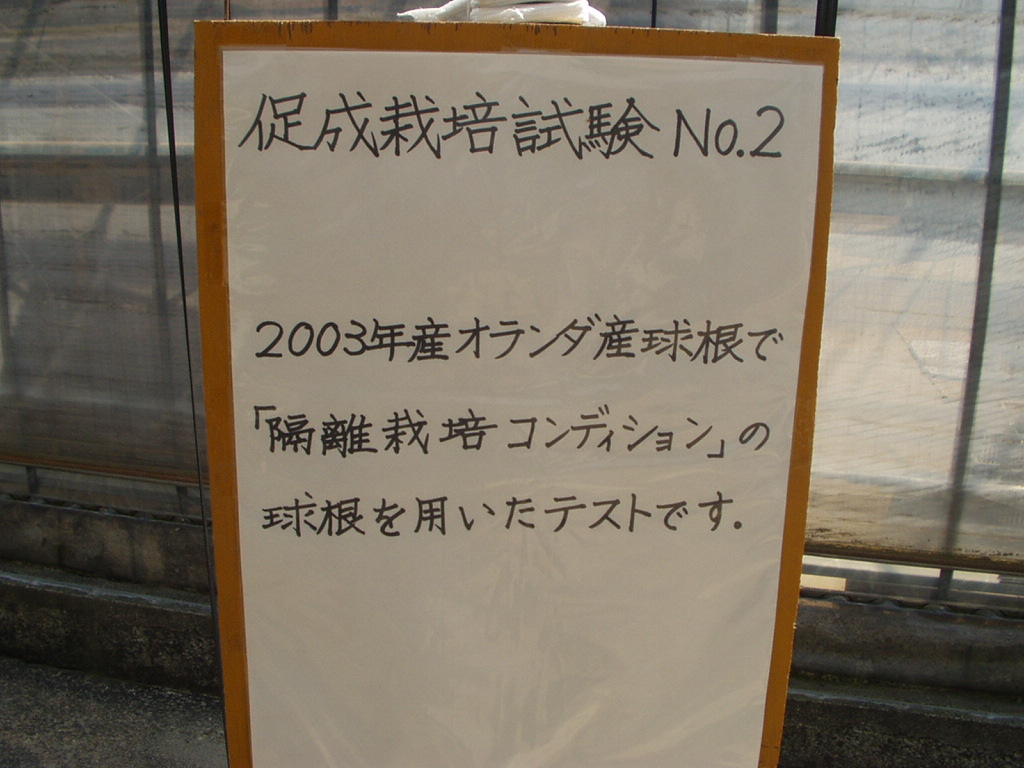 促成栽培試験 No.2
2003年産オランダ産球根で
「隔離栽培コンディション」の
球根を用いたテストです.